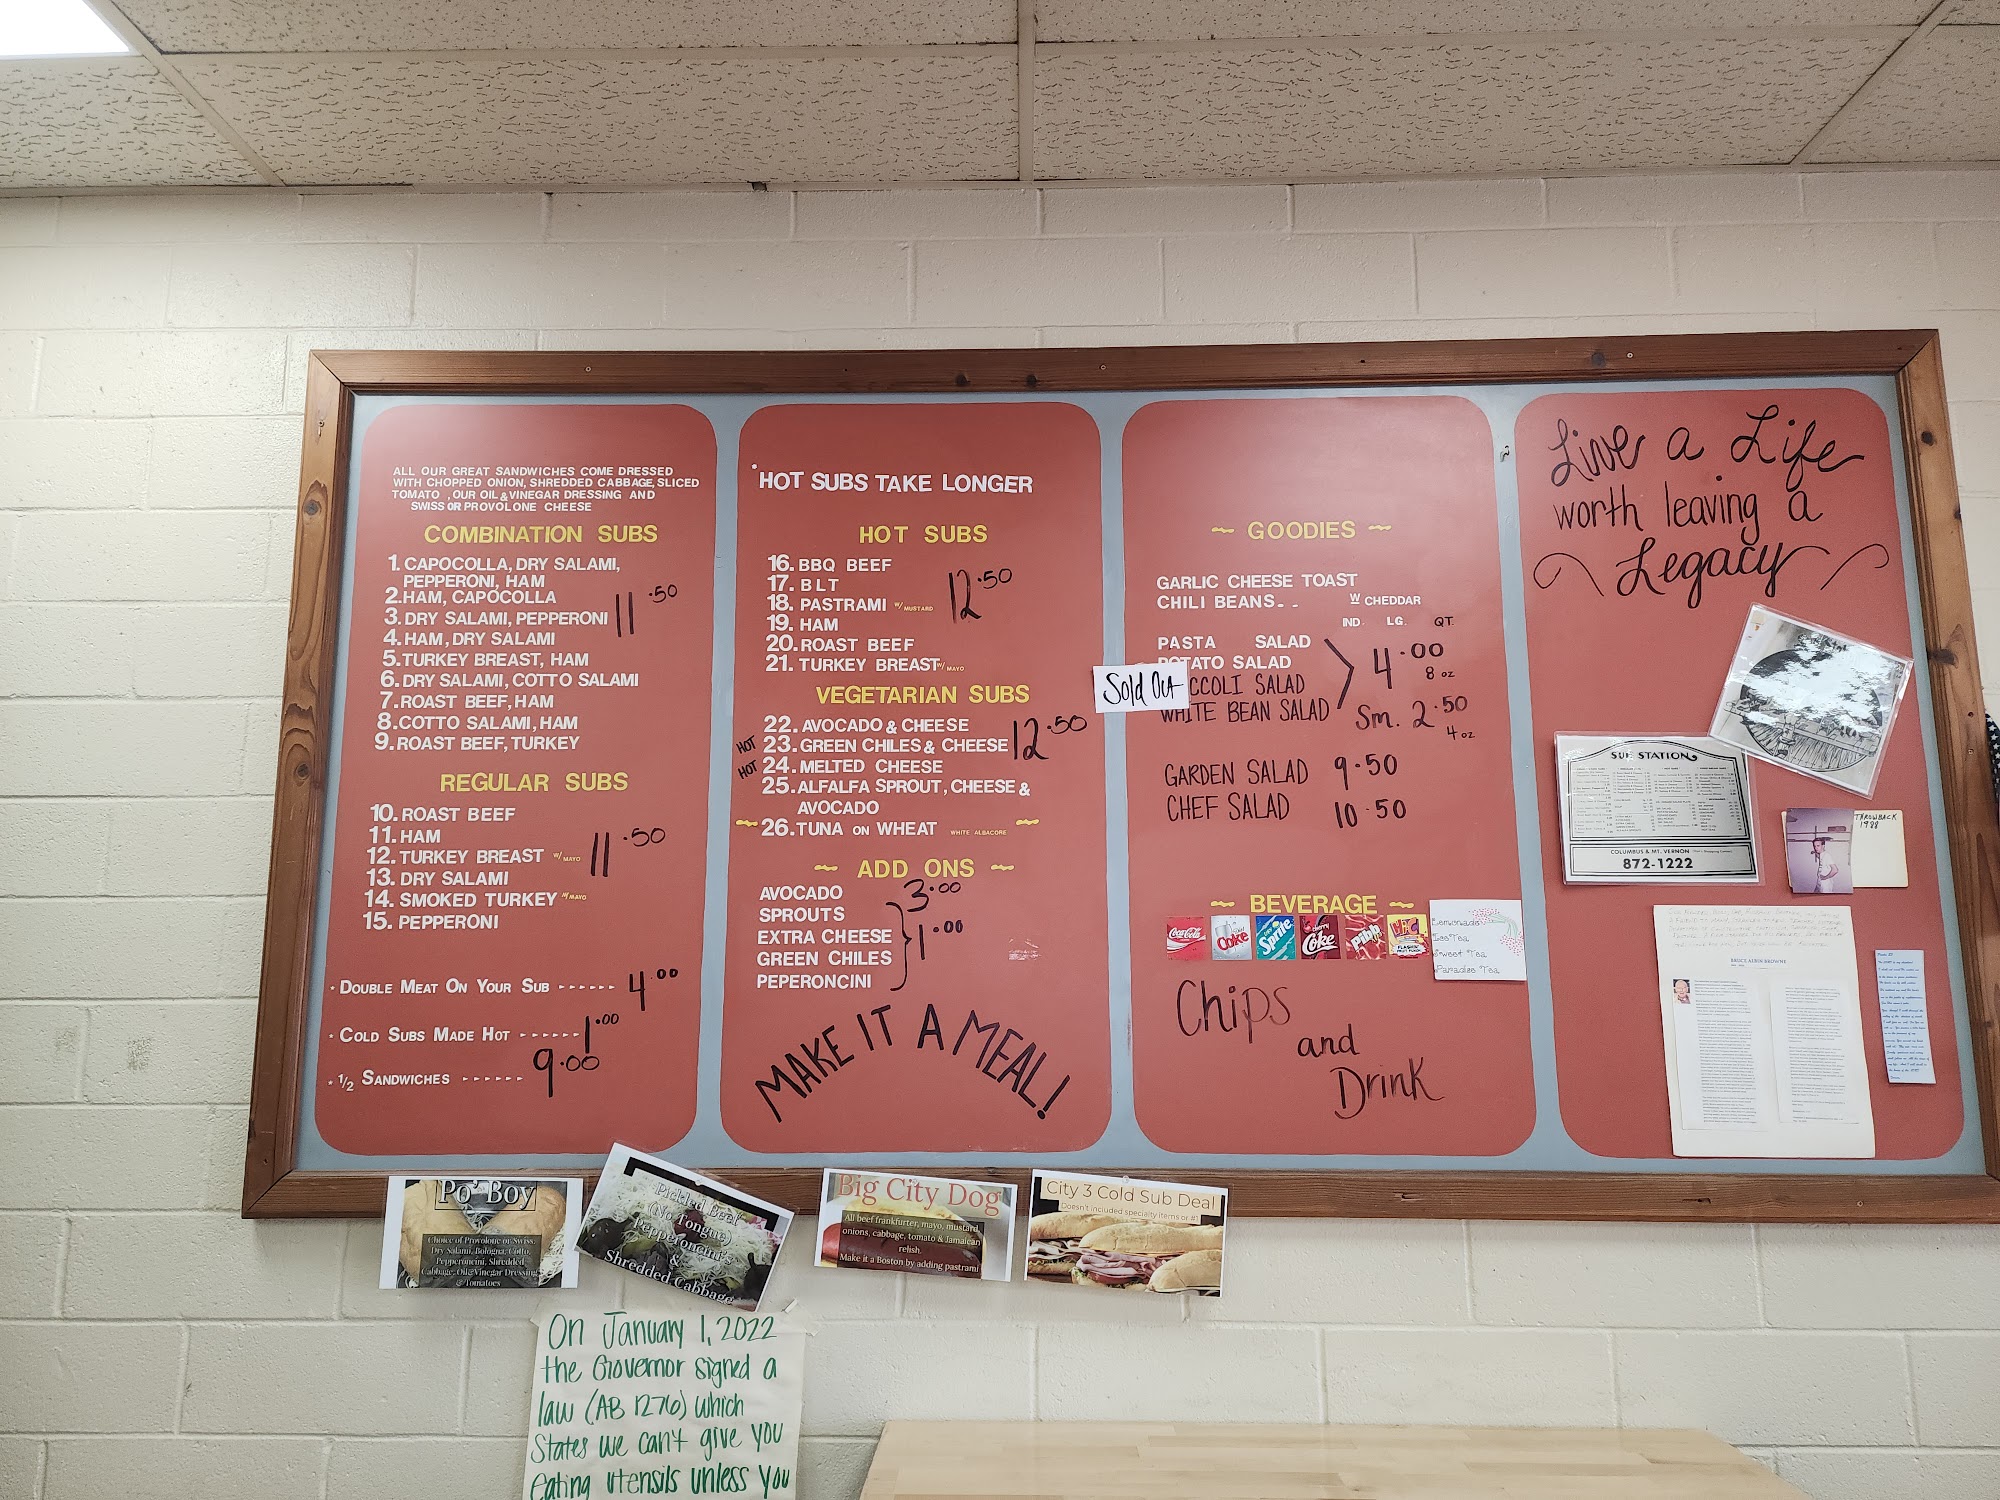 ALL OUR GREAT SANDWICHES COME DRESSED
WITH CHOPPED ONION, SHREDDED CABBAGE, SLICED
TOMATO , OUR OIL & VINEGAR DRESSING AND
SWISS OR PROVOLONE CHEESE
COMBINATION SUBS
1. CAPOCOLLA, DRY SALAMI,
PEPPERONI, HAM
2. HAM, CAPOCOLLA
3. DRY SALAMI, PEPPERONI
4. HAM, DRY SALAMI
5. TURKEY BREAST, HAM
6. DRY SALAMI, COTTO SALAMI
7. ROAST BEEF, HAM
8. COTTO SALAMI, HAM
9. ROAST BEEF, TURKEY
11.50
REGULAR SUBS
10. ROAST BEEF
11. HAM
12. TURKEY BREAST W/ MAYO
13. DRY SALAMI
14. SMOKED TURKEY W/ MAYO
15. PEPPERONI
11.50
* DOUBLE MEAT ON YOUR SUB ------ 4.00
* COLD SUBS MADE HOT ------ 1.00
* 1/2 SANDWICHES ------ 9.00
*HOT SUBS TAKE LONGER
HOT SUBS
16. BBQ BEEF
17. BLT
18. PASTRAMI W/ MUSTARD
19. HAM
20. ROAST BEEF
21. TURKEY BREAST W/ MAYO
12.50
VEGETARIAN SUBS
22. AVOCADO & CHEESE
HOT 23. GREEN CHILES & CHEESE
HOT 24. MELTED CHEESE
25. ALFALFA SPROUT, CHEESE &
AVOCADO
~ 26. TUNA ON WHEAT WHITE ALBACORE ~
12.50
~ ADD ONS ~
AVOCADO 3.00
SPROUTS
EXTRA CHEESE
GREEN CHILES
PEPERONCINI
1.00
MAKE IT A MEAL!
~ GOODIES ~
GARLIC CHEESE TOAST
CHILI BEANS.. W CHEDDAR
IND. LG. QT.
PASTA SALAD
POTATO SALAD
Sold Out
CCOLI SALAD
WHITE BEAN SALAD
4.00
8 oz
Sm. 2.50
4 oz
GARDEN SALAD 9.50
CHEF SALAD 10.50
~ BEVERAGE ~
Coca-Cola
Coke
Sprite
Cherry Coke
Pibb
Lemonade
Ice Tea
Sweet Tea
Paradise Tea
Chips
and
Drink
Live a Life
worth leaving a
Legacy
SUB STATION
COLUMBUS & MT. VERNON
872-1222
THROWBACK
1988
BRUCE ALBIN BROWNE
Po' Boy
Choice of Provolone or Swiss,
Dry Salami, Bologna, Cotto,
Pepperoncini, Shredded
Cabbage, Oil&Vinegar Dressing
& Tomatoes
Pickled Beef
(No Tongue)
Pepperoncini's
&
Shredded Cabbage
Big City Dog
All beef frankfurter, mayo, mustard,
onions, cabbage, tomato & Jamaican
relish.
Make it a Boston by adding pastrami
City 3 Cold Sub Deal
Doesn't included specialty items or #1
On January 1, 2022
the Governor signed a
law (AB 1276) which
States we can't give you
eating utensils unless you